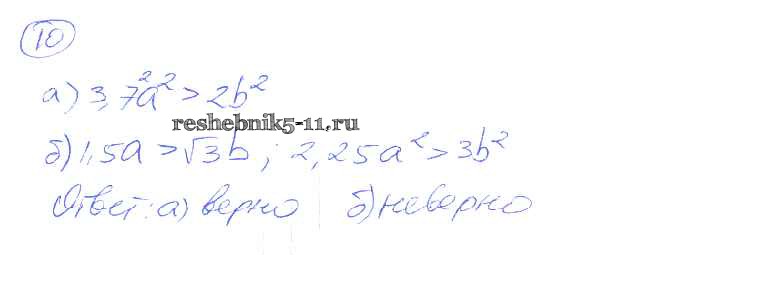 10
а) 3,7²a² > 2b²
reshebnik5-11.ru
б) 1,5a > √3b ; 2,25a² > 3b²
Ответ: а) верно б) неверно